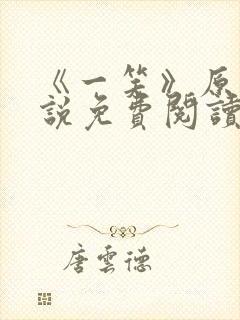 《一笑》原
說免費閱讀
唐雲德